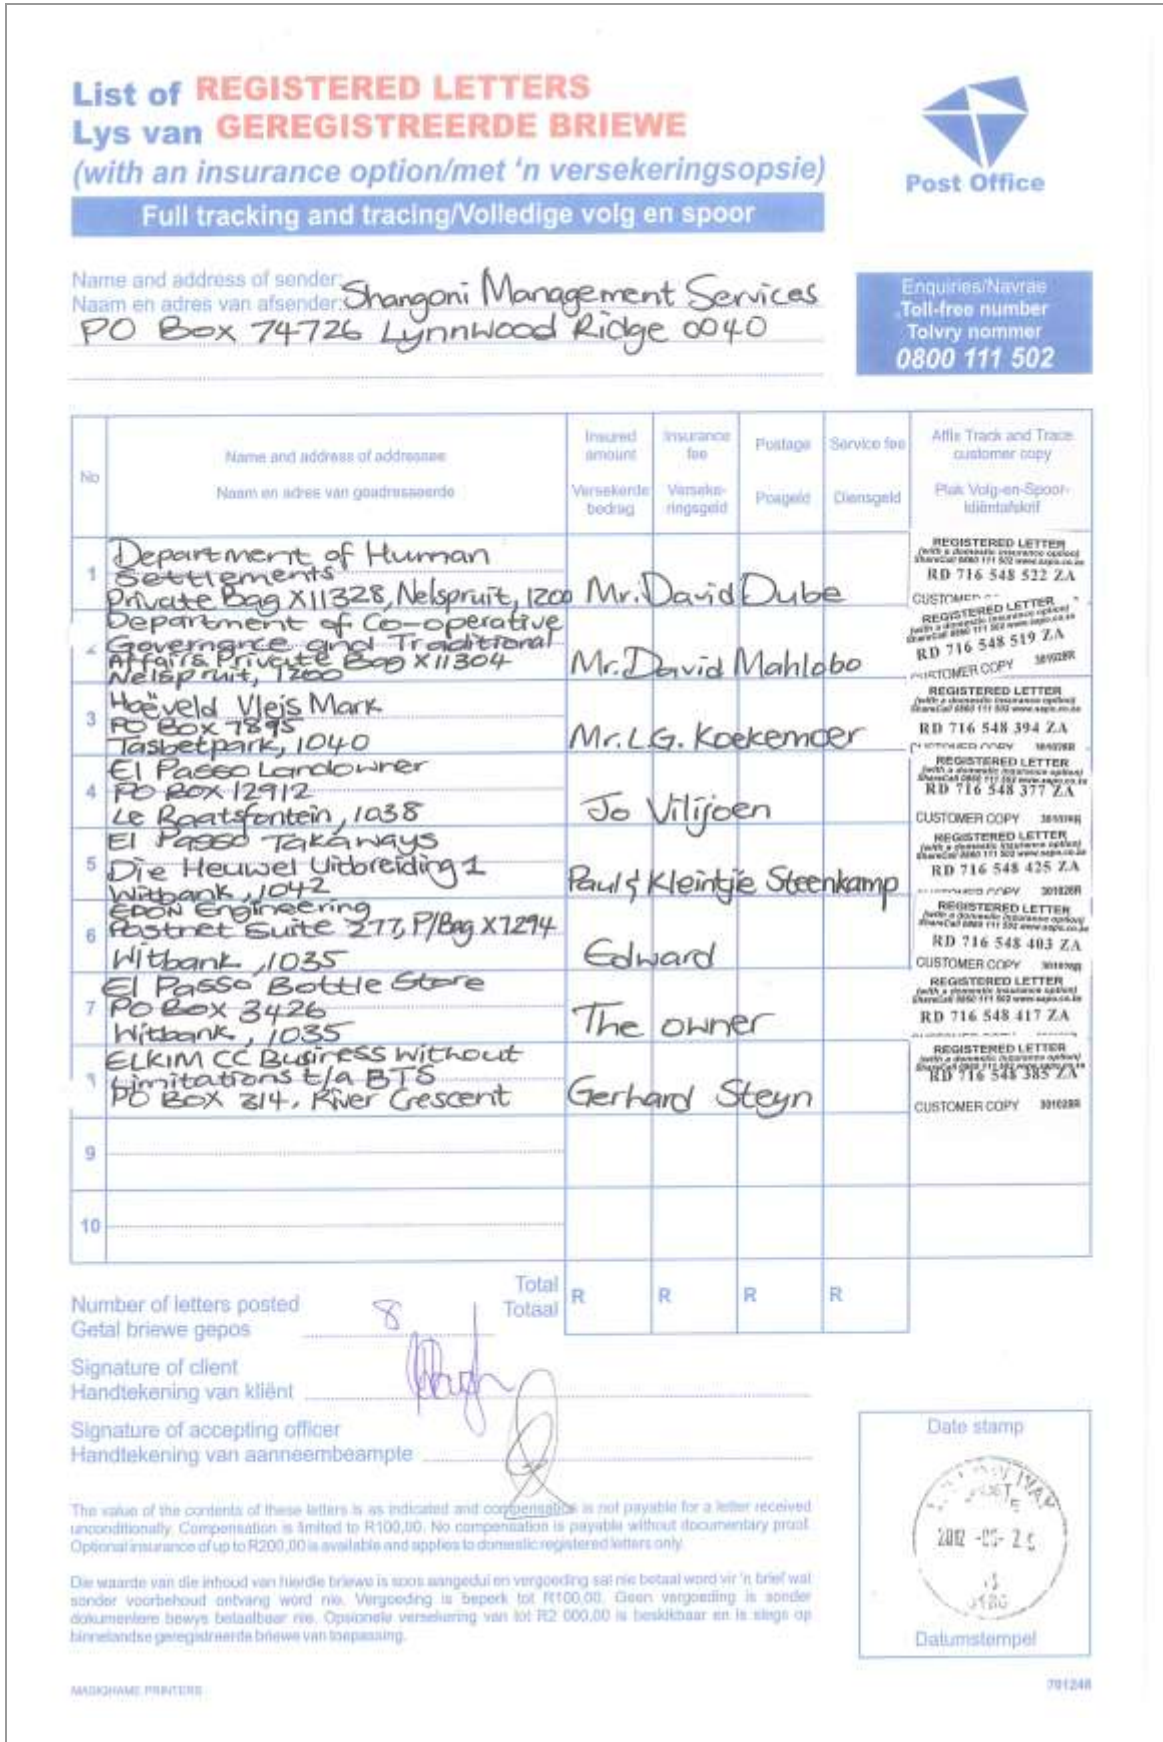 List of REGISTERED LETTERS
Lys van GEREGISTREERDE BRIEWE
(with an insurance option/met 'n versekeringsopsie)
Full tracking and tracing/Volledige volg en spoor
Post Office
Name and address of sender:
Naam en adres van afsender: Shangoni Management Services
PO Box 74726 Lynnwood Ridge 0040
Enquiries/Navrae
Toll-free number
Tolvry nommer
0800 111 502
No
Name and address of addressee
Naam en adres van geadresseerde
Insured amount
Versekerde bedrag
Insurance fee
Verseke-ringsgeld
Postage
Posgeld
Service fee
Diensgeld
Affix Track and Trace customer copy
Plak Volg-en-Spoor-kliëntafskrif
1
Department of Human
Settlements
Private Bag X11328, Nelspruit, 1200 Mr. David Dube
REGISTERED LETTER
(with a domestic insurance option)
ShareCall 0860 111 502 www.sapo.co.za
RD 716 548 522 ZA
Department of Co-operative
Governance and Traditional
Affairs Private Bag X11304
Nelspruit, 1200
Mr. David Mahlobo
REGISTERED LETTER
(with a domestic insurance option)
ShareCall 0860 111 502 www.sapo.co.za
RD 716 548 519 ZA
CUSTOMER COPY 301028R
3
Hoëveld Vleis Mark
PO Box 7895
Tasbetpark, 1040
Mr. L.G. Koekemoer
REGISTERED LETTER
(with a domestic insurance option)
ShareCall 0860 111 502 www.sapo.co.za
RD 716 548 394 ZA
CUSTOMER COPY 301028R
4
El Passo Landowner
PO Box 12912
Le Raatsfontein, 1038
Jo Vilijoen
REGISTERED LETTER
(with a domestic insurance option)
ShareCall 0860 111 502 www.sapo.co.za
RD 716 548 377 ZA
CUSTOMER COPY 301028R
5
El Passo Takaways
Die Heuwel Uitbreiding 1
Witbank, 1042
Paul & Kleintjie Steenkamp
REGISTERED LETTER
(with a domestic insurance option)
ShareCall 0860 111 502 www.sapo.co.za
RD 716 548 425 ZA
CUSTOMER COPY 301028R
6
EDON Engineering
Postnet Suite 277, P/Bag X7294
Witbank, 1035
Edward
REGISTERED LETTER
(with a domestic insurance option)
ShareCall 0860 111 502 www.sapo.co.za
RD 716 548 403 ZA
CUSTOMER COPY 301028R
7
El Passo Bottle Store
PO Box 3426
Witbank, 1035
The owner
REGISTERED LETTER
(with a domestic insurance option)
ShareCall 0860 111 502 www.sapo.co.za
RD 716 548 417 ZA
ELKIM CC Business Without
Limitations t/a BTS
PO Box 314, River Crescent
Gerhard Steyn
REGISTERED LETTER
(with a domestic insurance option)
ShareCall 0860 111 502 www.sapo.co.za
RD 716 548 385 ZA
CUSTOMER COPY 301028R
9
10
Number of letters posted
Getal briewe gepos
8
Total
Totaal
R
R
R
R
Signature of client
Handtekening van kliënt
Signature of accepting officer
Handtekening van aanneembeampte
The value of the contents of these letters is as indicated and compensation is not payable for a letter received
unconditionally. Compensation is limited to R100,00. No compensation is payable without documentary proof.
Optional insurance of up to R200,00 is available and applies to domestic registered letters only.
Die waarde van die inhoud van hierdie briewe is soos aangedui en vergoeding sal nie betaal word vir 'n brief wat
sonder voorbehoud ontvang word nie. Vergoeding is beperk tot R100,00. Geen vergoeding is sonder
dokumentere bewys betaalbaar nie. Opsionele versekering van tot R2 000,00 is beskikbaar en is slegs op
binnelandse geregistreerde briewe van toepassing.
Date stamp
Datumstempel
MASKHAME PRINTERS
701248